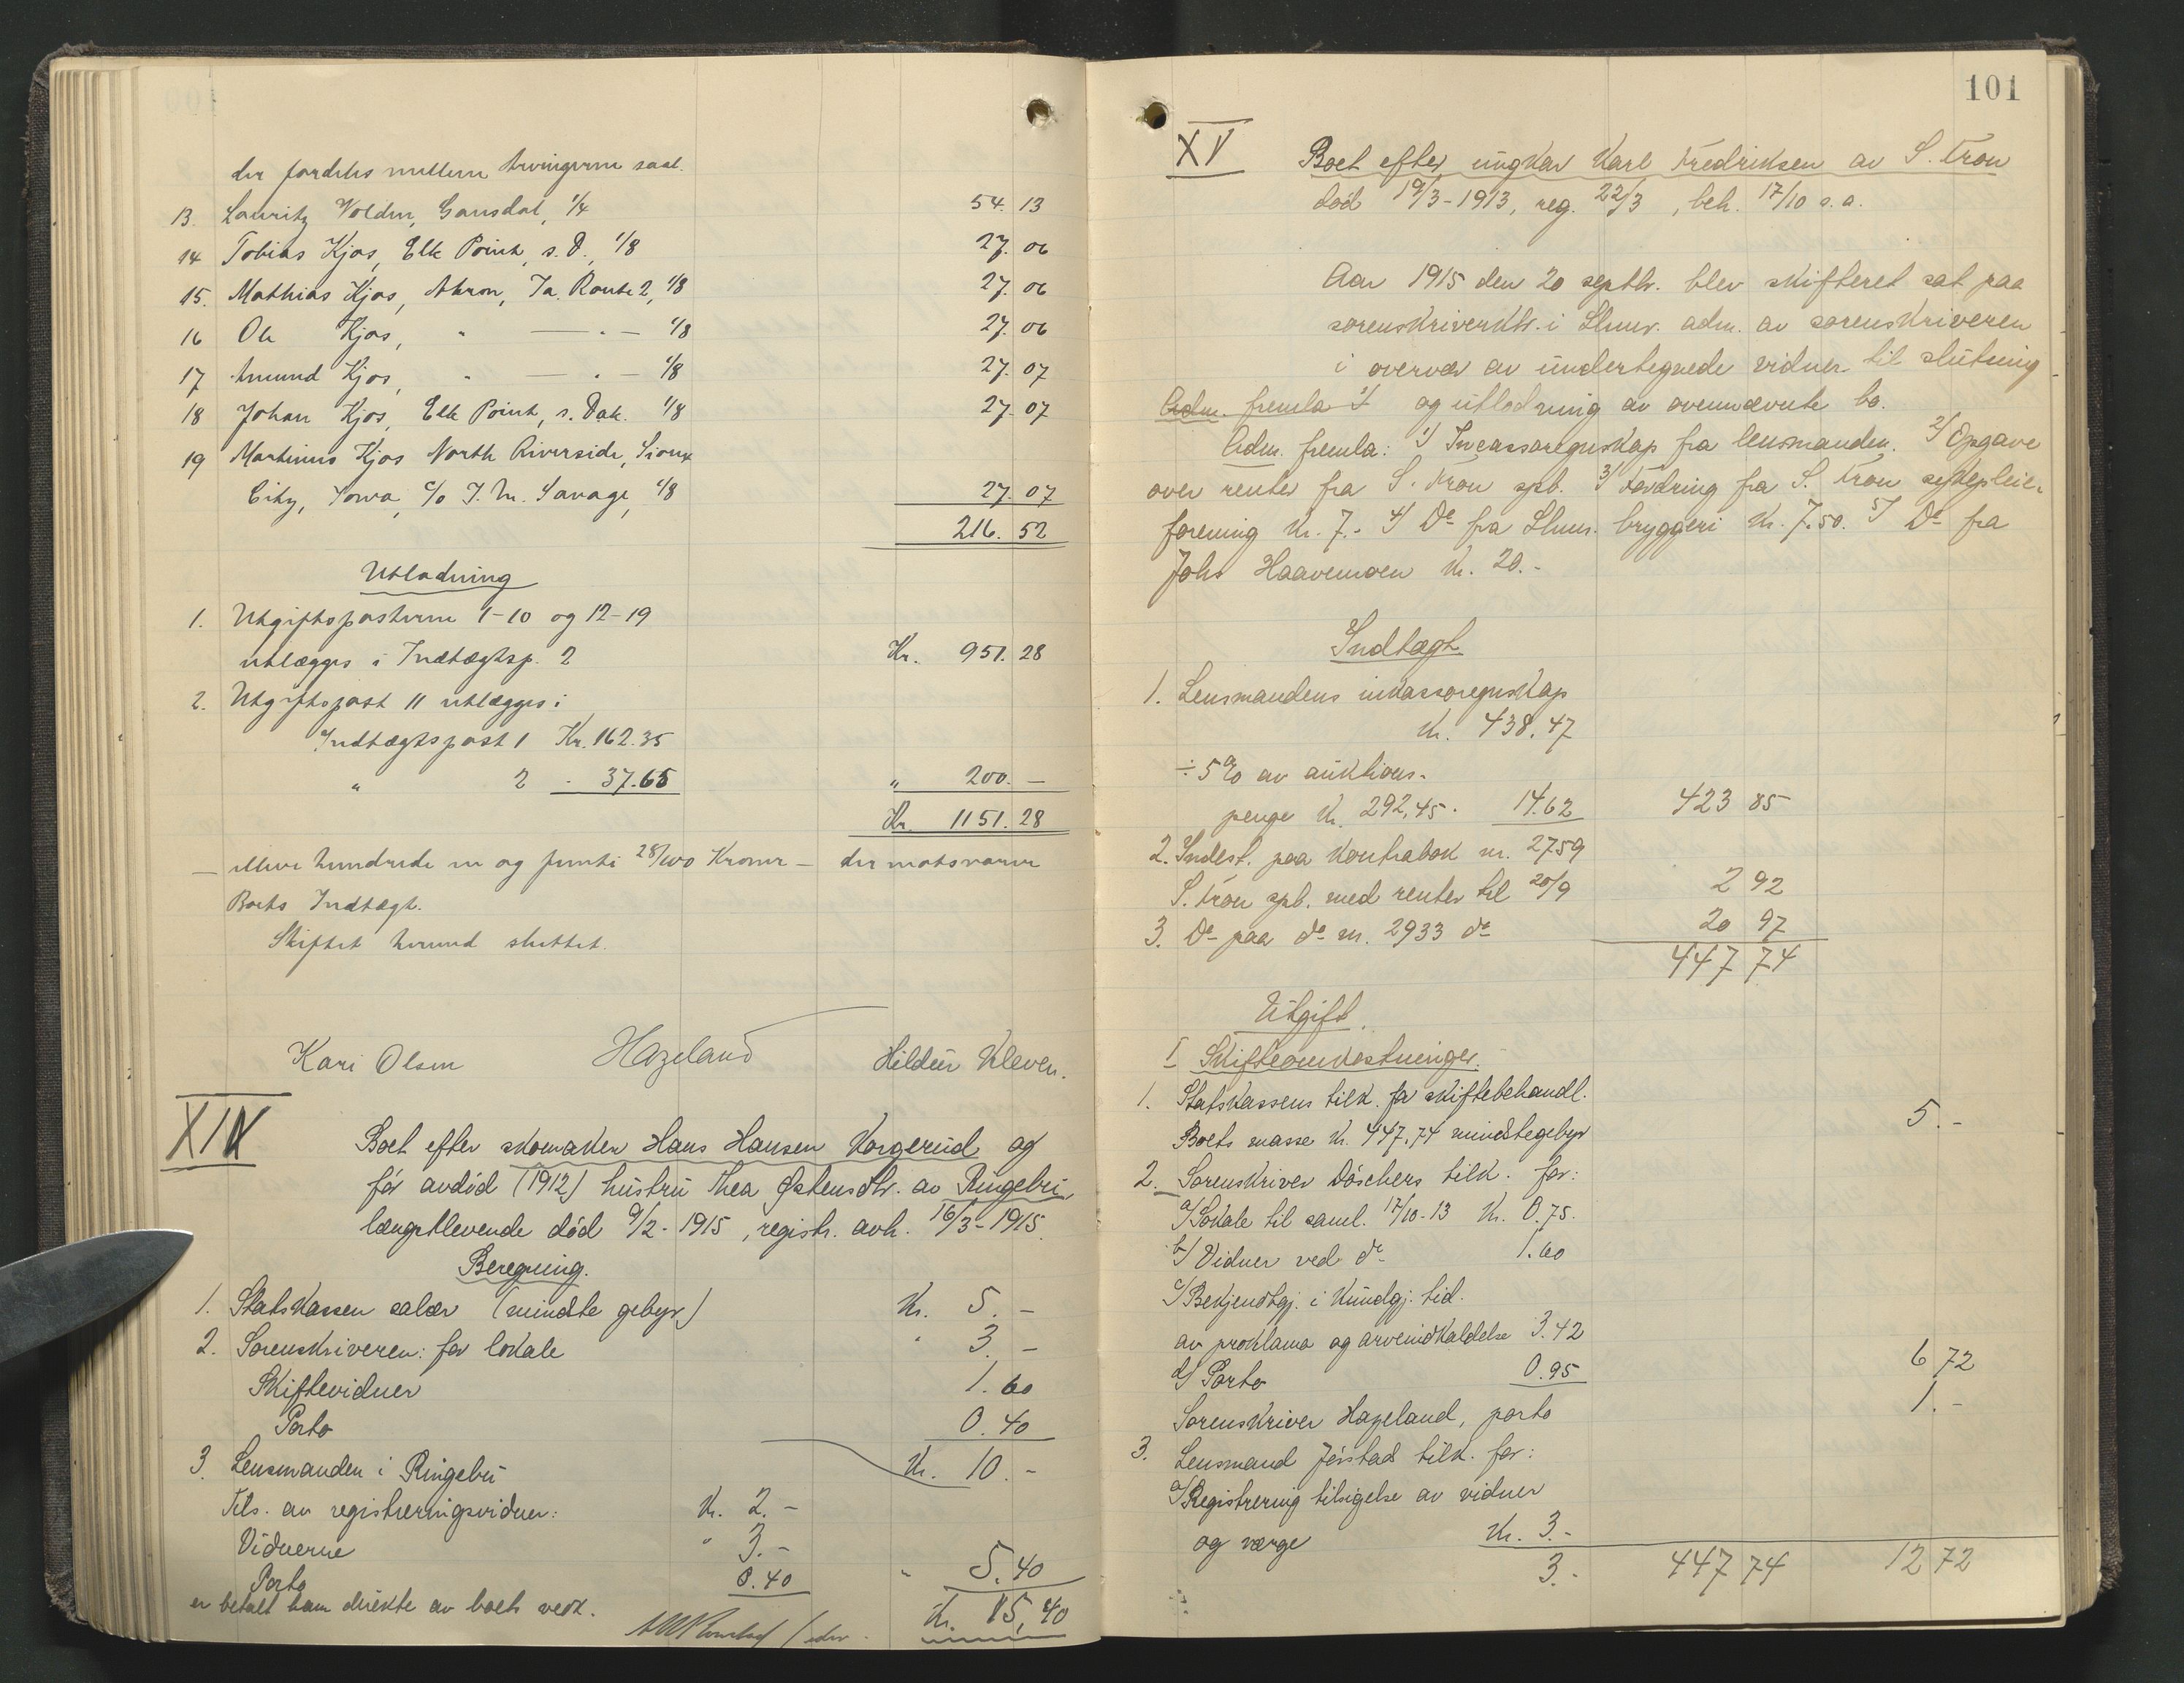 der fordeles mellem Arvingerne saal.
13. Lauritz Volden, Gausdal, 1/4 54.13
14 Tobias Kjos, Elk Point, s. D., 1/8 27.06
15. Mathias Kjos, Akron, Ia. Route 2, 1/8 27.06
16 Ole Kjos, " — " — 1/8 27.06
17 Amund Kjos, " — " — 1/8 27.07
18 Johan Kjos, Elk Point, s. Dak. 1/8 27.07
19 Martinus Kjos North Riverside, Sioux
City, Iowa, c/o J. M. Savage, 1/8 27.07
216.52
Utlodning
1. Utgiftsposterne 1-10 og 12-19
utlægges i Indtægtsp. 2 Kr. 951.28
2. Utgiftspost 11 utlægges i
Indtægtspost 1 Kr. 162.35
" 2 - 37.65 " 200.—
Kr. 1151.28
— elleve hundrede en og femti 28/100 Kroner — der motsvarer
Boets Indtægt.
Skiftet hermed sluttet.
Kari Olsen Hazeland Hildur Kleven.
XIV
Boet efter skomaker Hans Hansen Korgerud og
før avdød (1912) hustru Thea Østensdtr. av Ringebu,
længstlevende død 9/2-1915, registr. avh. 16/3-1915.
Beregning.
1. Statskassen salær (mindste gebyr) Kr. 5.-
2. Sorenskriveren: for lokale " 3.-
Skiftevidner 1.60
Porto 0.40
Kr. 10.-
3. Lensmanden i Ringebu
Tils. av registreringsvidner: Kr. 2.-
Vidnerne " 3.-
Porto 0.40 " 5.40
er betalt ham direkte av boets vedk. Kr. 15,40
101
XV Boet efter ungkar Karl Fredriksen av S. Fron
død 19/3-1913, reg. 22/3, beh. 17/10 s.a.
Aar 1915 den 20 septbr. blev skifteret sat paa
sorenskriverktr. i Lhmr. adm. av sorenskriveren
i overvær av undertegnede vidner til slutning
Adm. fremla 1/ og utlodning av ovennævnte bo.
Adm. fremla: 1/ Incassoregnskap fra lensmanden. 2/ Opgave
over renter fra S. Fron spb. 3/ Fordring fra S. Fron sykepleie-
forening kr. 7.- 4/ Do fra Lhmr. bryggeri kr. 7.50. 5/ Do fra
Johs Haavemoen kr. 20.-
Indtægt
1. Lensmandens inkassoregnskap
kr. 438.47
÷ 5% av auktions-
penge kr. 292,45. 14.62 423 85
2. Indest. paa kontrabok nr. 2759
S. Fron spb. med renter til 20/9 2 92
3. Do paa do nr. 2933 do 20 97
447 74
Utgift.
I Skifteomkostninger.
1. Statskassens tilk. for skiftebehandl.
Boets masse kr. 447,74 mindstegebyr 5.-
2. Sorenskriver Döschers tilk. for:
a/ Lokale til saml. 17/10-13 kr. 0.75.
b/ Vidner ved do 1.60
c/ Bekjendtgj. i kundgj. tid.
av proklama og arveindkaldelse 3.42
d/ Porto 0.95 6 72
Sorenskriver Hazeland, porto 1.-
3. Lensmand Jörstad tilk. for:
a/ Registrering tilsigelse av vidner
og værge kr. 3.-
3.- 447 74 12 72